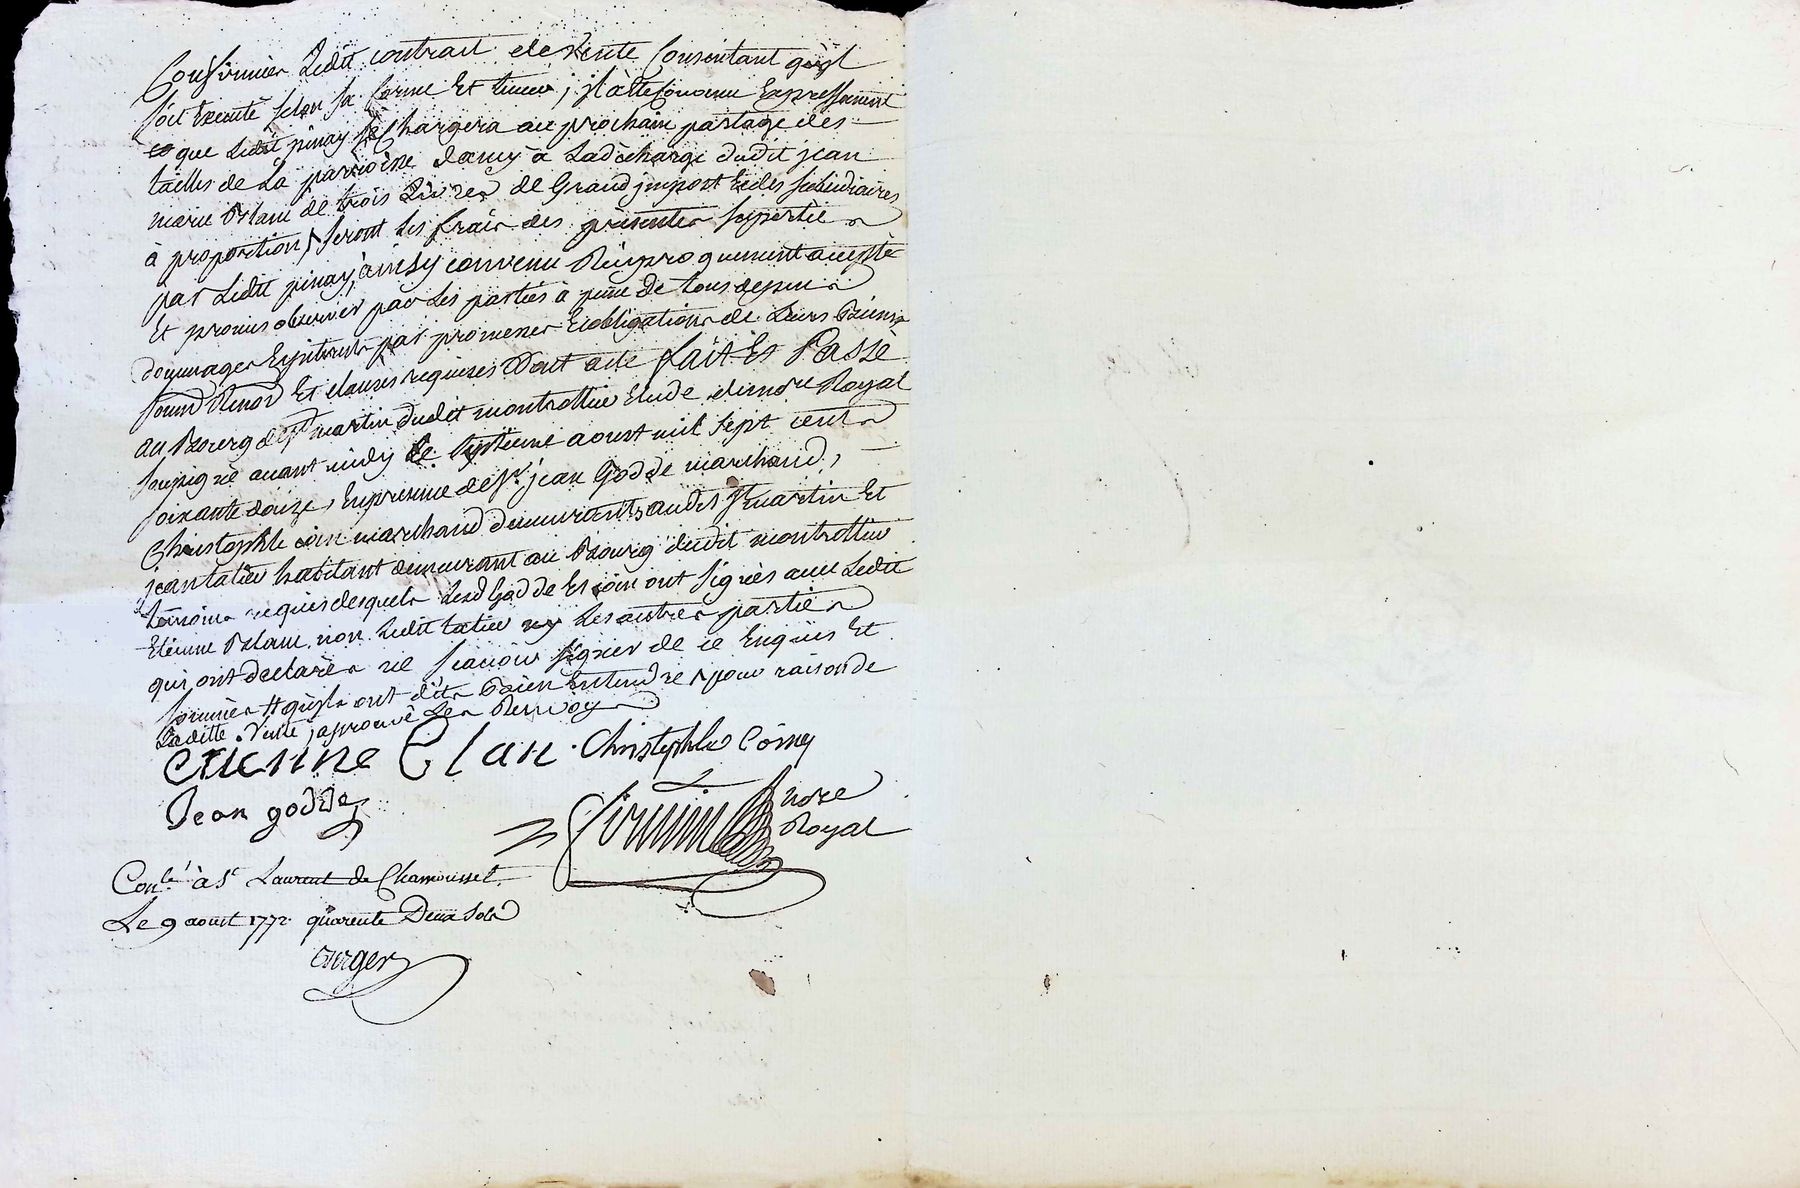 Confirmer Ledit contrait de Vente Consentant qu'jl
soit Executé selon sa forme Et teneur ; jl a êtte Convenu Expressement
que Ledit pinay se Chargera au prochain partage des
tailles de La parroisse dancy à Ladécharge dudit jean
marie Blanc de trois Livres de Grand jmport Et des subsidiaires
à proportion, seront Les frais des presentes suportés
par Ledit pinay, ainsy convenu Réciproquement accepté
Et promis observer par Les parties à peine de tous depens
dommages Et jnterests par promesses Et obligations de Leurs biens
soumis Renon Et clauses requises Dont acte fait Et Passé
au Bourg de St martin dudit montrottier Etude du nore Royal
soussigné avant midy le septieme aoust mil sept cent
soixante douze, En presence de sr. jean Godde marchand,
Christophle coin marchand demeurants audit St martin Et
jean tatieu habitant demeurant au Bourg dudit montrottier
témoins requis desquels Lesd Godde Et coin ont signés avec Ledit
Etienne Blanc non Ledit tatieu ny Les autres parties
qui ont declarés ne scavoir signer de ce Enquis Et
sommés # qu'jls ont dits bien Entendre, pour raison de
Laditte Vente, aprouvé Les Renvoys
etienne blan Christophle Coing
Jean godde
Firmin nore
Royal
Conlé à St Laurent de Chamousset
Le 9 aoust 1772 quarente Deux sols